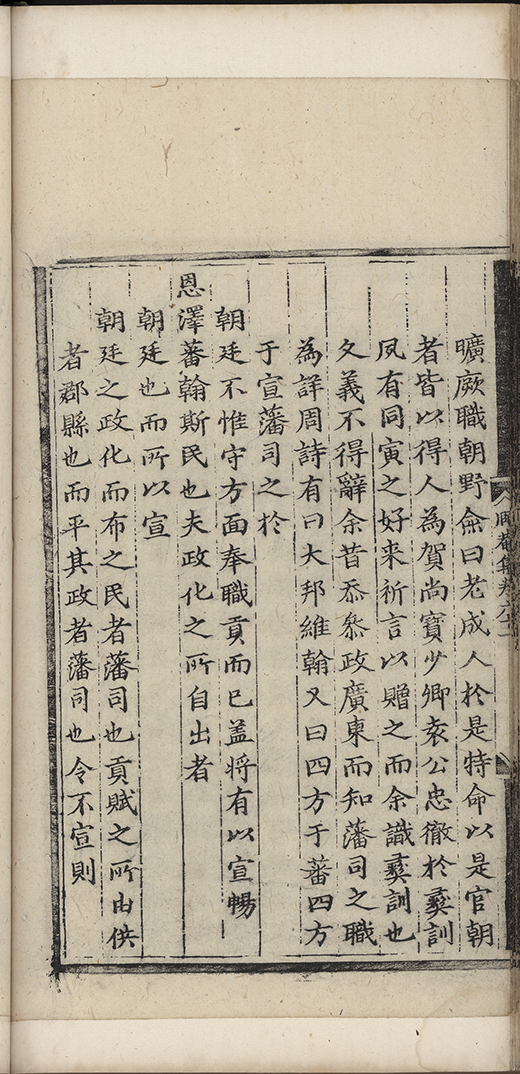 曠厥職朝野僉曰老成人於是特命以是官朝
者皆以得人為賀尚寶少卿袁公忠徹於彝訓
夙有同寅之好来祈言以贈之而余識彝訓也
久義不得辭余昔忝叅政廣東而知藩司之職
為詳周詩有曰大邦維翰又曰四方于蕃四方
于宣藩司之於
朝廷不惟守方面奉職貢而已盖将有以宣暢
恩澤蕃翰斯民也夫政化之所自出者
朝廷也而所以宣
朝廷之政化而布之民者藩司也貢賦之所由供
者郡縣也而平其政者藩司也令不宣則